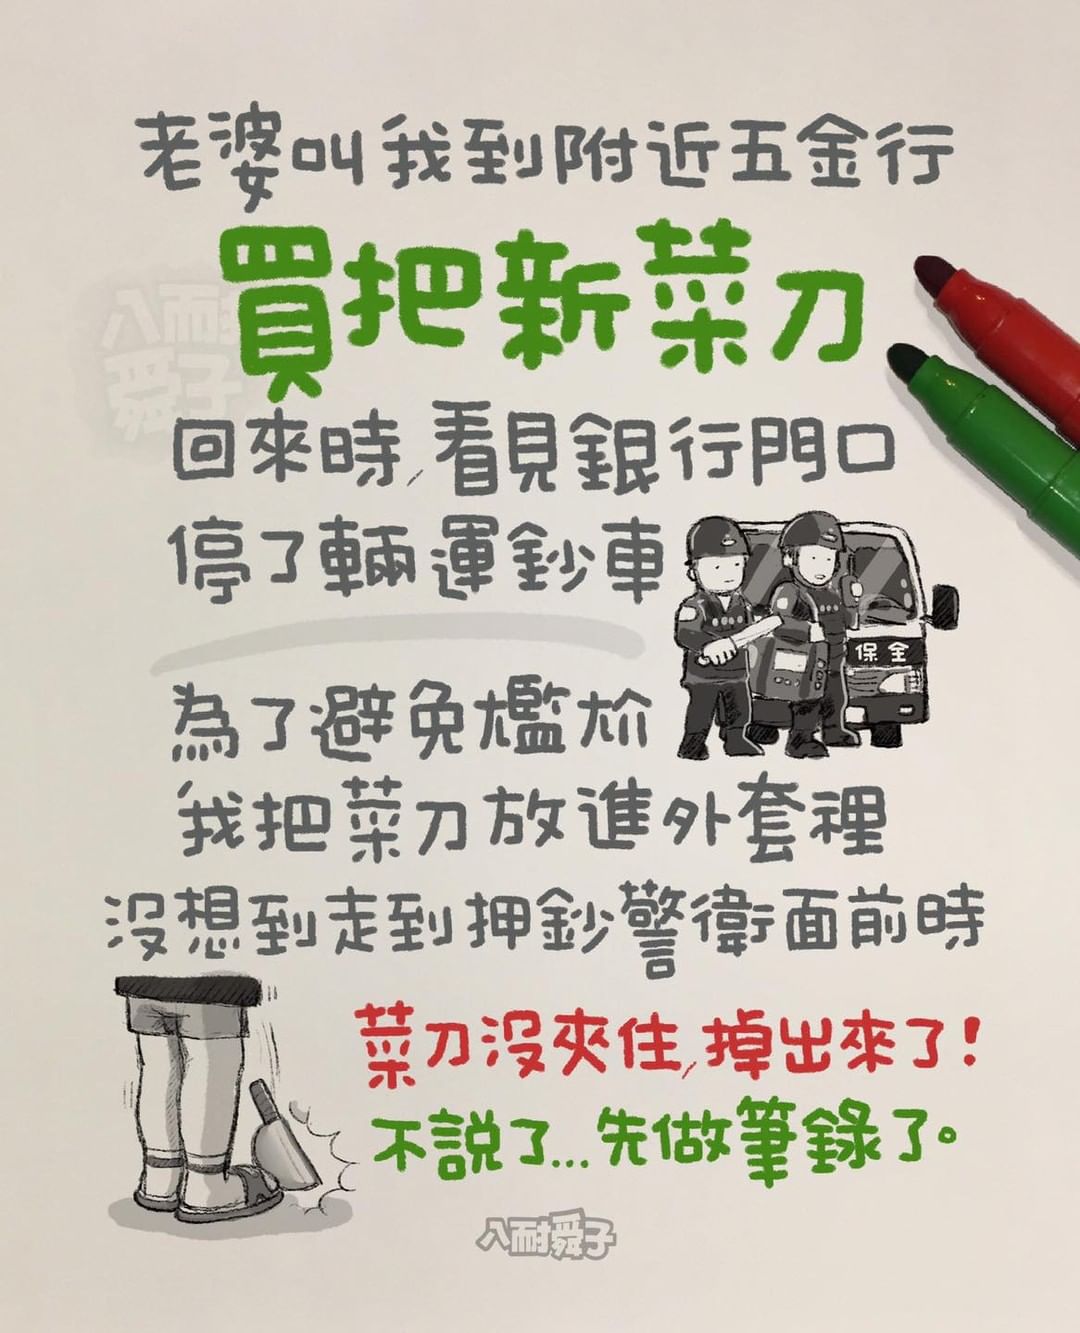 老婆叫我到附近五金行
買把新菜刀
八耐舜子
回來時,看見銀行門口
停了輛運鈔車
保全
為了避免尷尬
我把菜刀放進外套裡
沒想到走到押鈔警衛面前時
菜刀沒夾住,掉出來了!
不説了...先做筆錄了。
八耐舜子